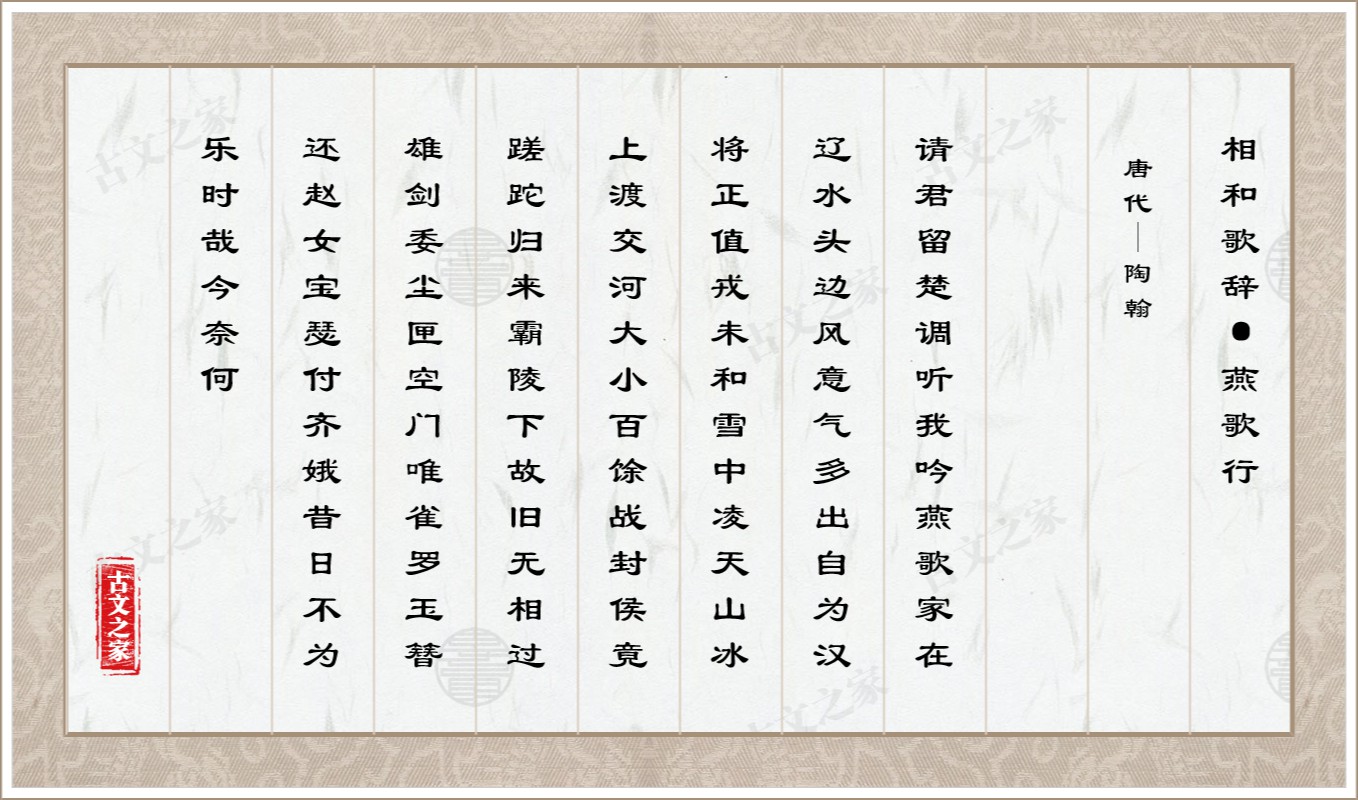 相和歌辞●燕歌行
唐代—陶翰
请君留楚调听我吟燕歌家在
辽水头边风意气多出自为汉
将正值戎未和雪中凌天山冰
上渡交河大小百馀战封侯竟
蹉跎归来霸陵下故旧无相过
雄剑委尘匣空门唯雀罗玉簪
还赵女宝瑟付齐娥昔日不为
乐时哉今奈何
古文之家
古文之家
古文之家
古文之家
古文之家
古文之家
古文之家